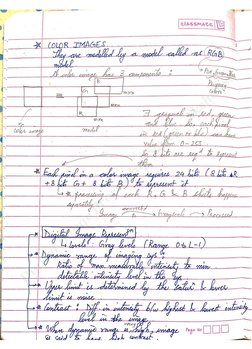 CLASSMATE
* COLOR IMAGES
They are modelled by a model called as RGB
model
A color image has 3 components:
Primary
Colors
R
G
B
color image
model
I represent in red, green
and blue
in red (green or blue) can have
value from 0-255
so 8 bits are reqd to represent
them
* Each pixel in a color image requires 24 bits (8 bits R
+ 8 bits G + 8 bits B) to represent it
* processing of each R, G & B comp happens
separately
Image
Processed
Digital Image Represenn
↳ Levels: Gray levels (Range 0 to L-1)
* Dynamic range of imaging sys:
Ratio of max measurable intensity to min
detectable intensity level in the sys
* Upper limit is determined by the satur & lower
limit is noise
* Contrast: Diff in intensity b/w highest & lowest intensity
level in the image
* When dynamic range is high, image
is said to have high contrast
Page No